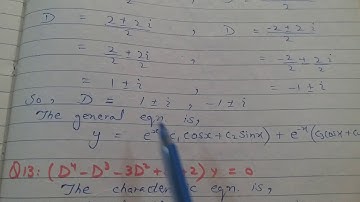 D = 2 ± 2i / 2 , D = -2 ± 2i / 2
= 2/2 ± 2i/2 , = -2/2 ± 2i/2
= 1 ± i , = -1 ± i
So, D = 1 ± i , -1 ± i
The general eqn. is,
y = e^x (c₁ cosx + c₂ sinx) + e^-x (c₃ cosx +
Q13: (D⁴ - D³ - 3D² + 2) y = 0
The character eqn. is,